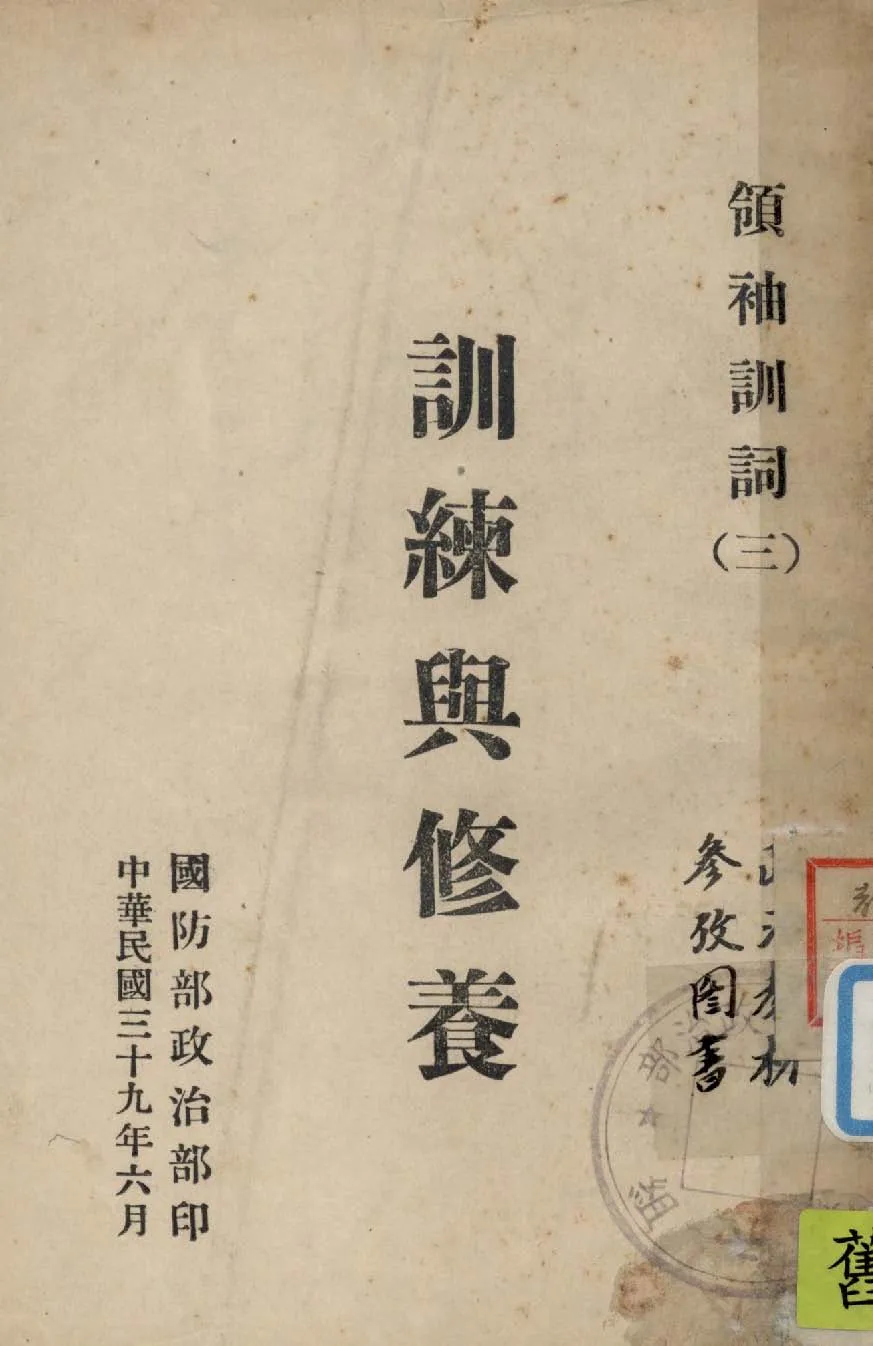 領袖訓詞(三)
訓練與修養
國防部政治部印
中華民國三十九年六月
參攷图書
部
舊